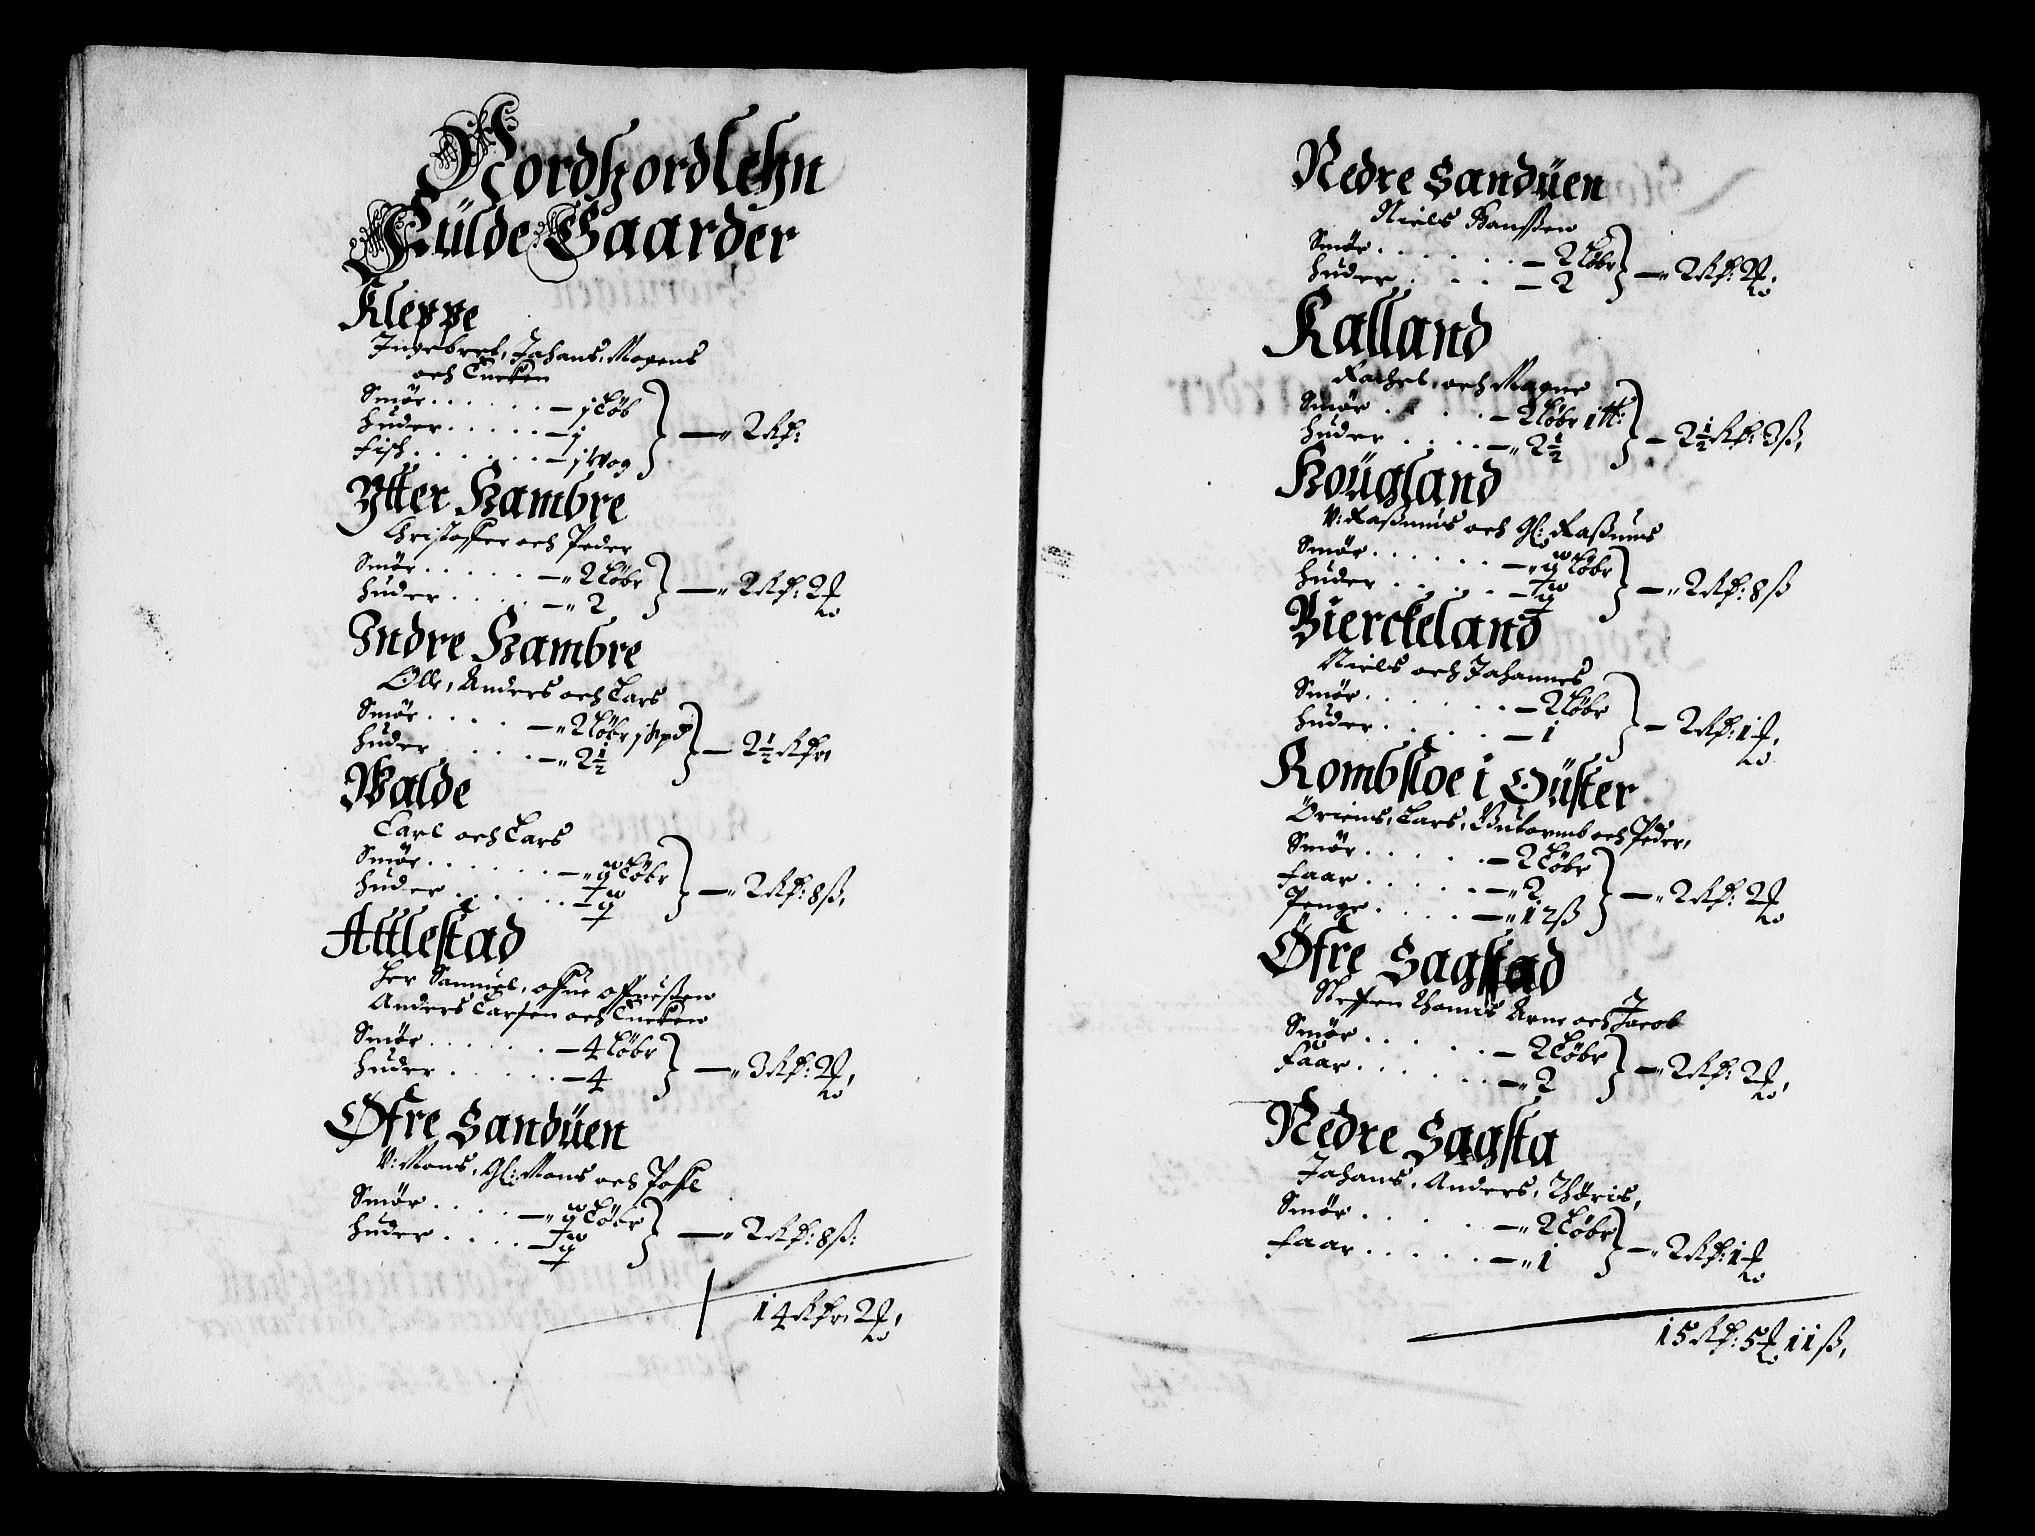 Nordhordlehn
Fülde Gaarder
Kleppe
Ingebret, Johans, Mogens
och Encken
Smør . . . . . . — j Løb
Huder . . . . . — j
Fisk . . . . . . — j Wog
— 2 Rdr:
Ytter Hambre
Christoffer och Peder
Smør . . . . . — 2 Løbr
Huder . . . . — 2
— 2 Rdr: 2
Indre Hambre
Olle, Anders och Lars
Smør . . . . — 2 Løbr j Spd
Huder . . . . — 2½
— 2½ Rdr,
Walde
Carl och Lars
Smør . . . . . . — Løbr
Huder . . . . . . —
— 2 Rdr: 8 ß,
Attlestad
Her Samuel,
Anders Larsen och Encken
Smør . . . . . . — 4 Løbr
Huder . . . . . — 4
— 3 Rdr: 2
Øfre Sandüen
V: Mons, Gl: Mons och
Smør . . . . — Løbr
Huder . . . . —
— 2 Rdr: 8 ß:
14 Rdr, 2
Nedre Sandüen
Niels Hanssen
Smør . . . . . . — 2 Løbr
Huder . . . . — 2
— 2 Rdr: 2
Kalland
Rachel, och Magne
Smør . . . . — 2 Løbr 1 tt:
Huder . . . . — 2½
— 2½ Rdr: 3 ß,
Houügland
V: Rasmus och Gl: Rasmus
Smør . . . . . . — Løbr
Huder . . . . . —
— 2 Rdr: 8 ß
Bierckeland
Niels och Johannes
Smør . . . . . . — 2 Løbr
Huder . . . . . — 1
— 2 Rdr: 1
Rombsloe i Oüster
Lars, Gutormb och Peder,
Smør . . . . . — 2 Løbr
Faar . . . . . — 2
Penge . . . . — 12 ß
— 2 Rdr: 2
Øfre Sagstad
Steffen Thomis Arne och Jacob
Smør . . . . . — 2 Løbr
Faar . . . . . . — 2
— 2 Rdr: 2
Nedre Sagsta
Johans, Anders, Thøris,
Smør . . . . — 2 Løbr
Faar . . . . . — 1
— 2 Rdr: 1
15 Rdr: 5 11 ß,